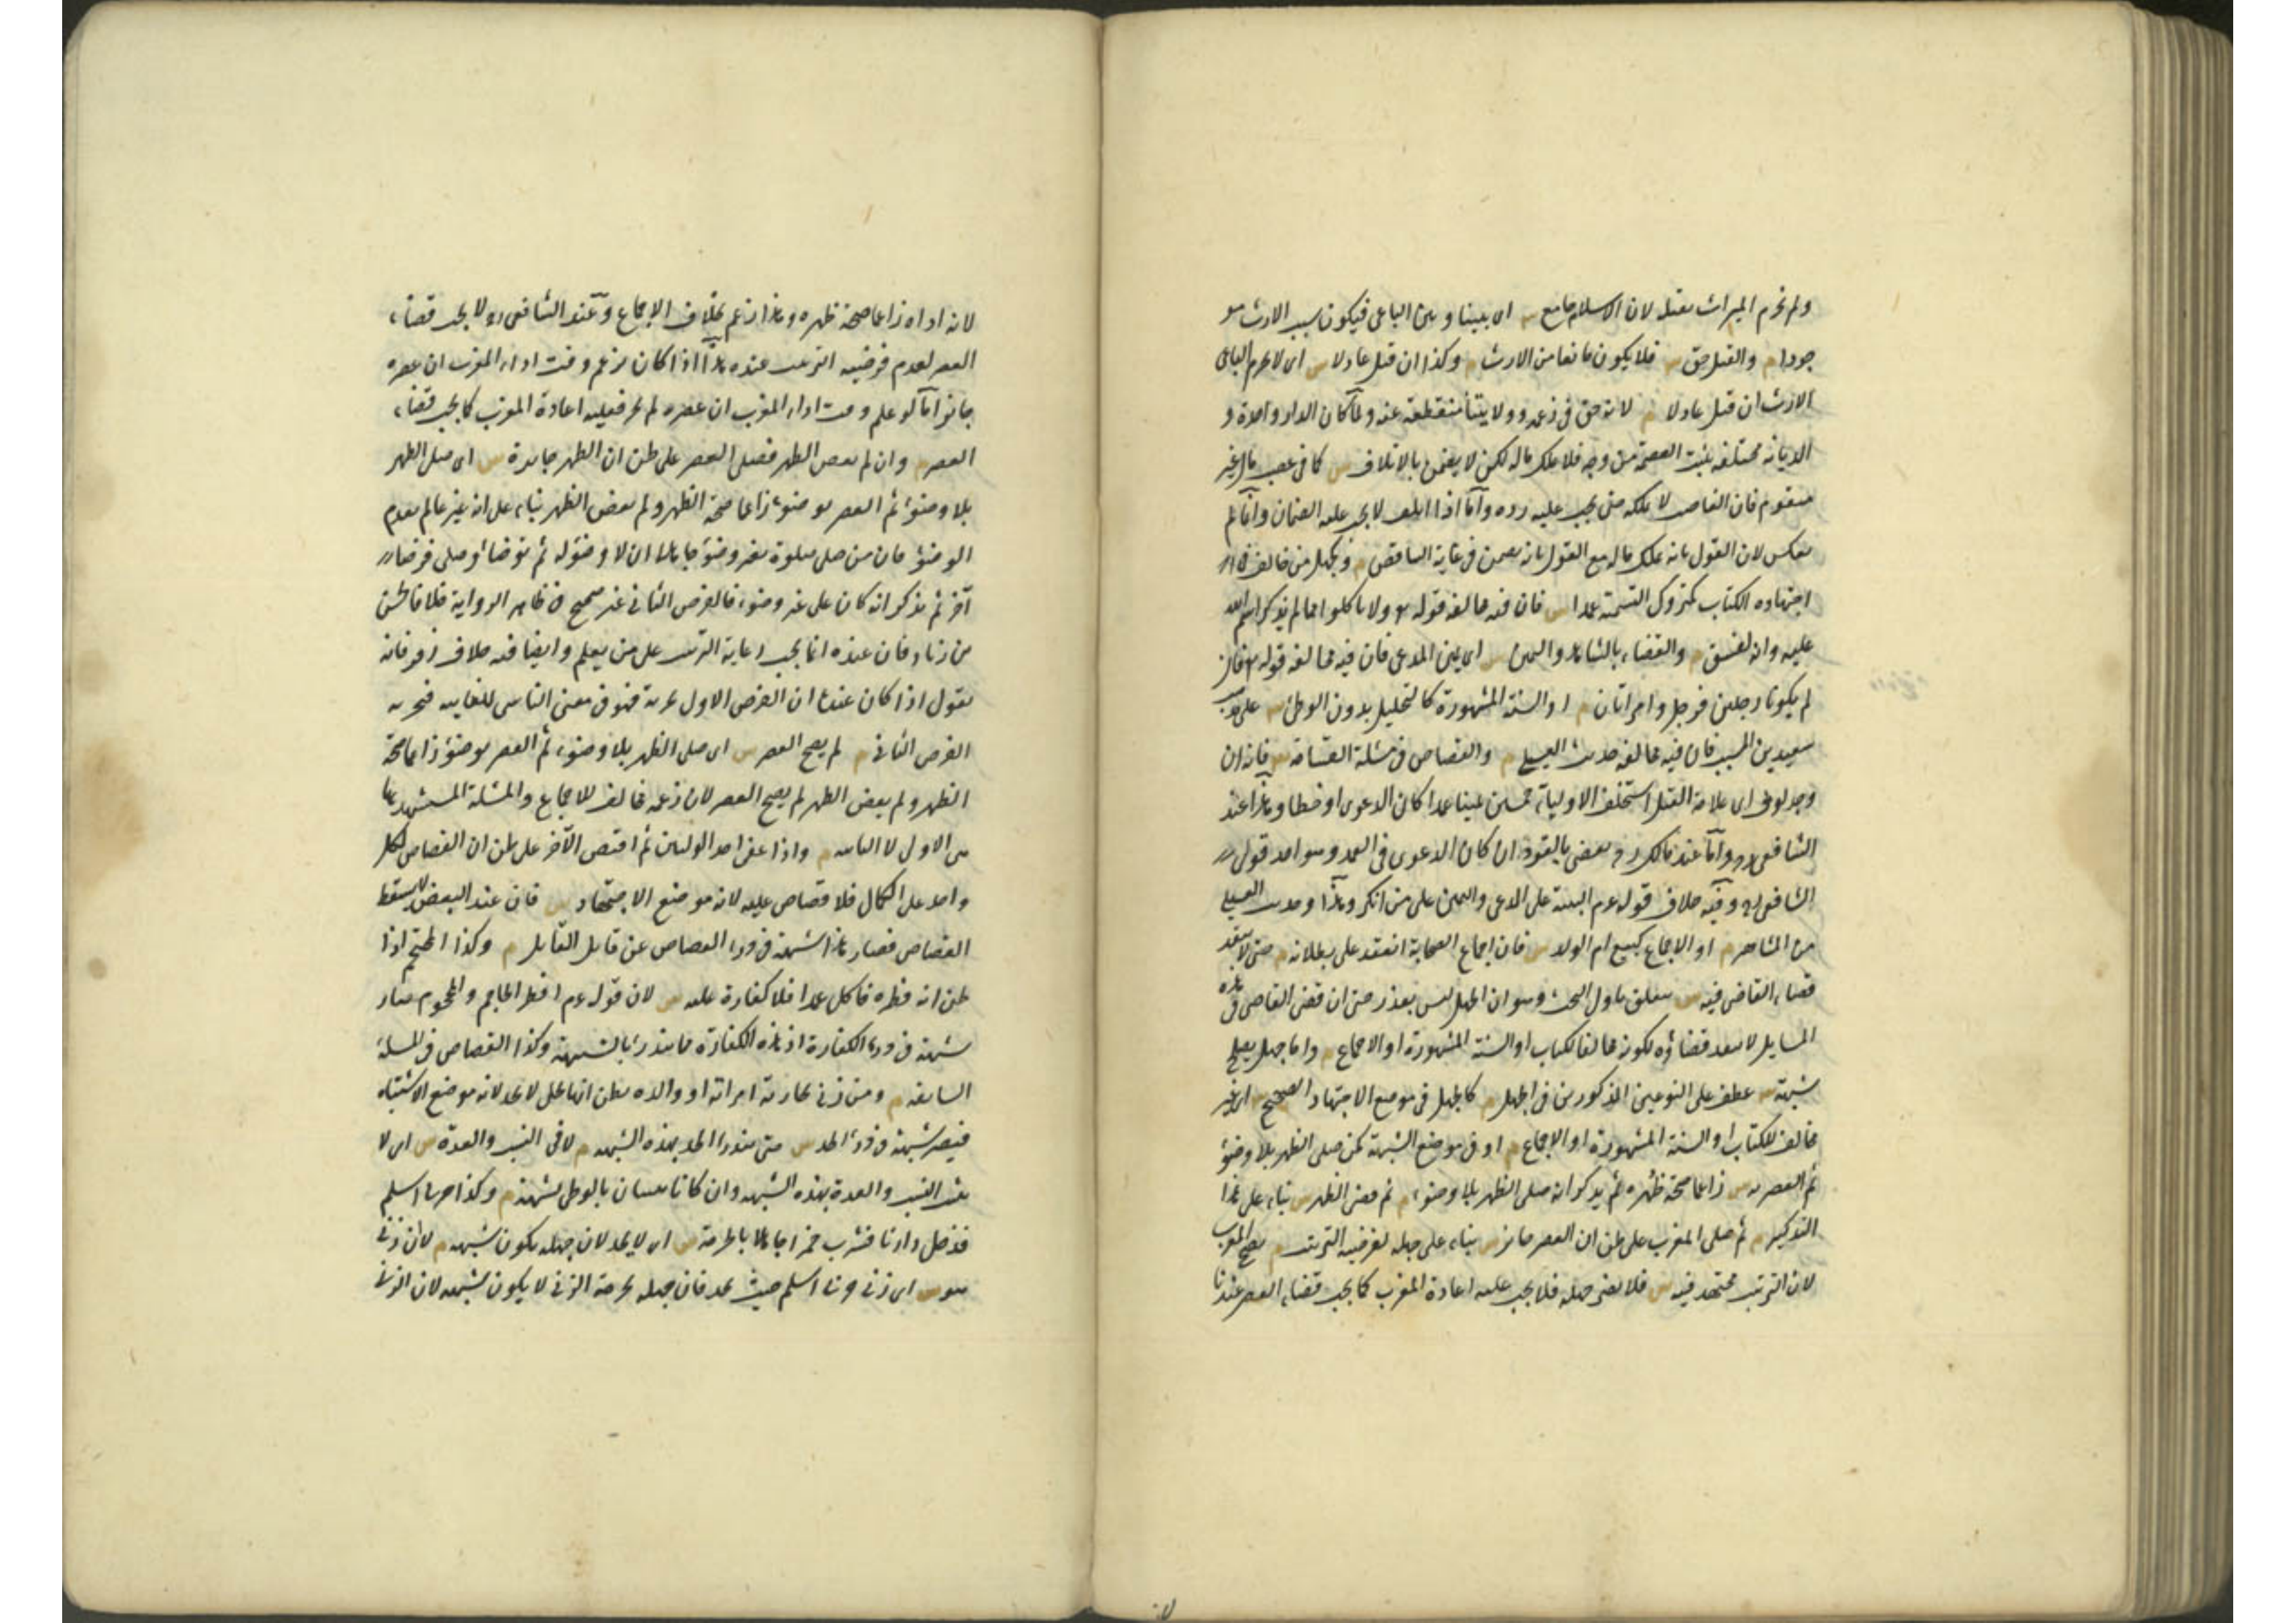 ولم نحرم الميراث بقتله لان الاسلام جامع س اى بيننا وبين الباغى فيكون سبب الارث مو
جودا م والقتل حق س فلا يكون مانعا من الارث م وكذا ان قتل عادلا س اى لا يحرم الباغى
الارث ان قتل عادلا م لانه حق فى زعمه وولايتنا منقطعة عنه ولما كان الدار واحدة و
الديانة مختلفة يثبت العصمة من وجه فلا نملك ماله لكن لا يضمن بالاتلاف س كما فى غصب مال غير
متقوم فان الغاصب لا يملكه حتى يجب عليه رده واما اذا اتلف لا يجب عليه الضمان وانما لم
يعكس لان القول بانه نملك ماله مع القول بانه يضمن فى غاية التناقض م وكجهل من خالف فى
اجتهاده الكتاب كمتروك التسمية عمدا س فان فيه مخالفة قوله ولا تاكلوا مما لم يذكر اسم الله
عليه وانه لفسق م والقضاء بالشاهد واليمين س اى يمين المدعى فان فيه مخالفة قوله فان
لم يكونا رجلين فرجل وامراتان م او السنة المشهورة كالتحليل بدون الوطئ س على مذهب
سعيد بن المسيب فان فيه مخالفة حديث العسيلة م والقصاص فى مسئلة القسامة س فانه ان
وجد لوث اى علامة القتل استحلف الاولياء خمسين يمينا عمدا كان الدعوى او خطا وهذا عند
الشافعى رح واما عند مالك رح يقضى بالقود ان كان الدعوى فى العمد وهو احد قولى
الشافعى رح وفيه خلاف قوله عم البينة على المدعى واليمين على من انكر وهذا وحديث العسيلة
من المشاهير م او الاجماع كبيع ام الولد س فان اجماع الصحابة انعقد على بطلانه م حتى لا ينفذ
قضاء القاضى فيه س متعلق باول البحث وهو ان الجهل ليس بعذر حتى ان قضى القاضى فى هذه
المسايل لا ينفذ قضاؤه لكونه مخالفا للكتاب او السنة المشهورة او الاجماع م واما جهل يصلح
شبهة س عطف على النوعين المذكورين فى الجهل م كالجهل فى موضع الاجتهاد الصحيح س اى غير
مخالف للكتاب او السنة المشهورة او الاجماع م او فى موضع الشبهة كمن صلى الظهر بلا وضوء
ثم العصر به س زاعما صحة ظهره ثم يذكر انه صلى الظهر بلا وضوء م ثم قضى الظهر س بناء على هذا
التذكير م ثم صلى المغرب على ظن ان العصر جائز س بناء على جهله بفرضية الترتيب م يصح المغرب
لان الترتيب مجتهد فيه س فلا يضر جهله فلا يجب عليه اعادة المغرب كما يجب قضاء العصر عندنا
لانه اداه زاعما صحة ظهره وهذا زعم بخلاف الاجماع وعند الشافعى رح لا يجب قضاء
العصر لعدم فرضية الترتيب عنده هذا اذا كان يزعم وقت اداء المغرب ان عصره
جائز اما لو علم وقت اداء المغرب ان عصره لم يجز فعليه اعادة المغرب كما يجب قضاء
العصر م وان لم يقض الظهر فصلى العصر على ظن ان الظهر جايزة س اى صلى الظهر
بلا وضوء ثم العصر بوضوء زاعما صحة الظهر ولم يقض الظهر بناء على انه غير عالم بعدم
الوضوء فان من صلى صلوة بغير وضوء جاهلا ان لا وضوء له ثم توضأ وصلى فرضا
آخر ثم تذكر انه كان على غير وضوء فالفرض الثانى غير صحيح فى ظاهر الرواية خلافا لحسن
بن زياد فان عنده انما يجب رعاية الترتيب على من يعلم وايضا فيه خلاف زفر فانه
يقول اذا كان عنده ان الفرض الاول يجزيه فهو فى معنى الناسى للفايتة فيجزيه
الفرض الثانى م لم يصح العصر س اى صلى الظهر بلا وضوء ثم العصر بوضوء زاعما صحة
الظهر ولم يقض الظهر لم يصح العصر لان زعمه مخالف للاجماع والمسئلة المستشهد بها
هى الاول لا الثانية م واذا عفى احد الوليين ثم اقتص الآخر على ظن ان القصاص لكل
واحد على الكمال فلا قصاص عليه لانه موضع الاجتهاد س فان عند البعض لا يسقط
القصاص فصار هذا شبهة فى درء القصاص عن قاتل القاتل م وكذا المحتجم اذا
ظن انه فطره فاكل عمدا فلا كفارة عليه س لان قوله عم افطر الحاجم والمحجوم صار
شبهة فى درء الكفارة اذ هذه الكفارة مما يندرئ بالشبهة وكذا القصاص فى المسئلة
السابقة م ومن زنى بجارية امراته او والده بظن انها تحل لا يحد لانه موضع الاشتباه
فيصير شبهة فى درء الحد س حتى يندرا الحد بهذه الشبهة م لا فى النسب والعدة س اى لا
يثبت النسب والعدة بهذه الشبهة وان كانا يثبتان بالوطى بشبهة م وكذا حربى اسلم
فدخل دارنا فشرب خمرا جاهلا بالحرمة س اى لا يحد لان جهله يكون شبهة م لا ان زنى
هو س اى زنى حربى اسلم حيث يحد فان جهله بحرمة الزنى لا يكون شبهة لان الزنى